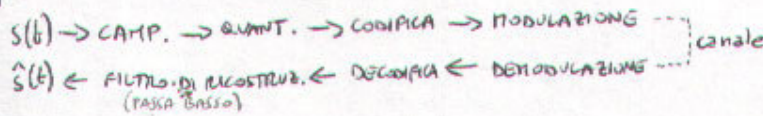 s(t) → CAMP. → QUANT. → CODIFICA → MODULAZIONE
canale
ŝ(t) ← FILTRO DI RICOSTRUZ. ← DECODIFICA ← DEMODULAZIONE
(PASSA BASSO)